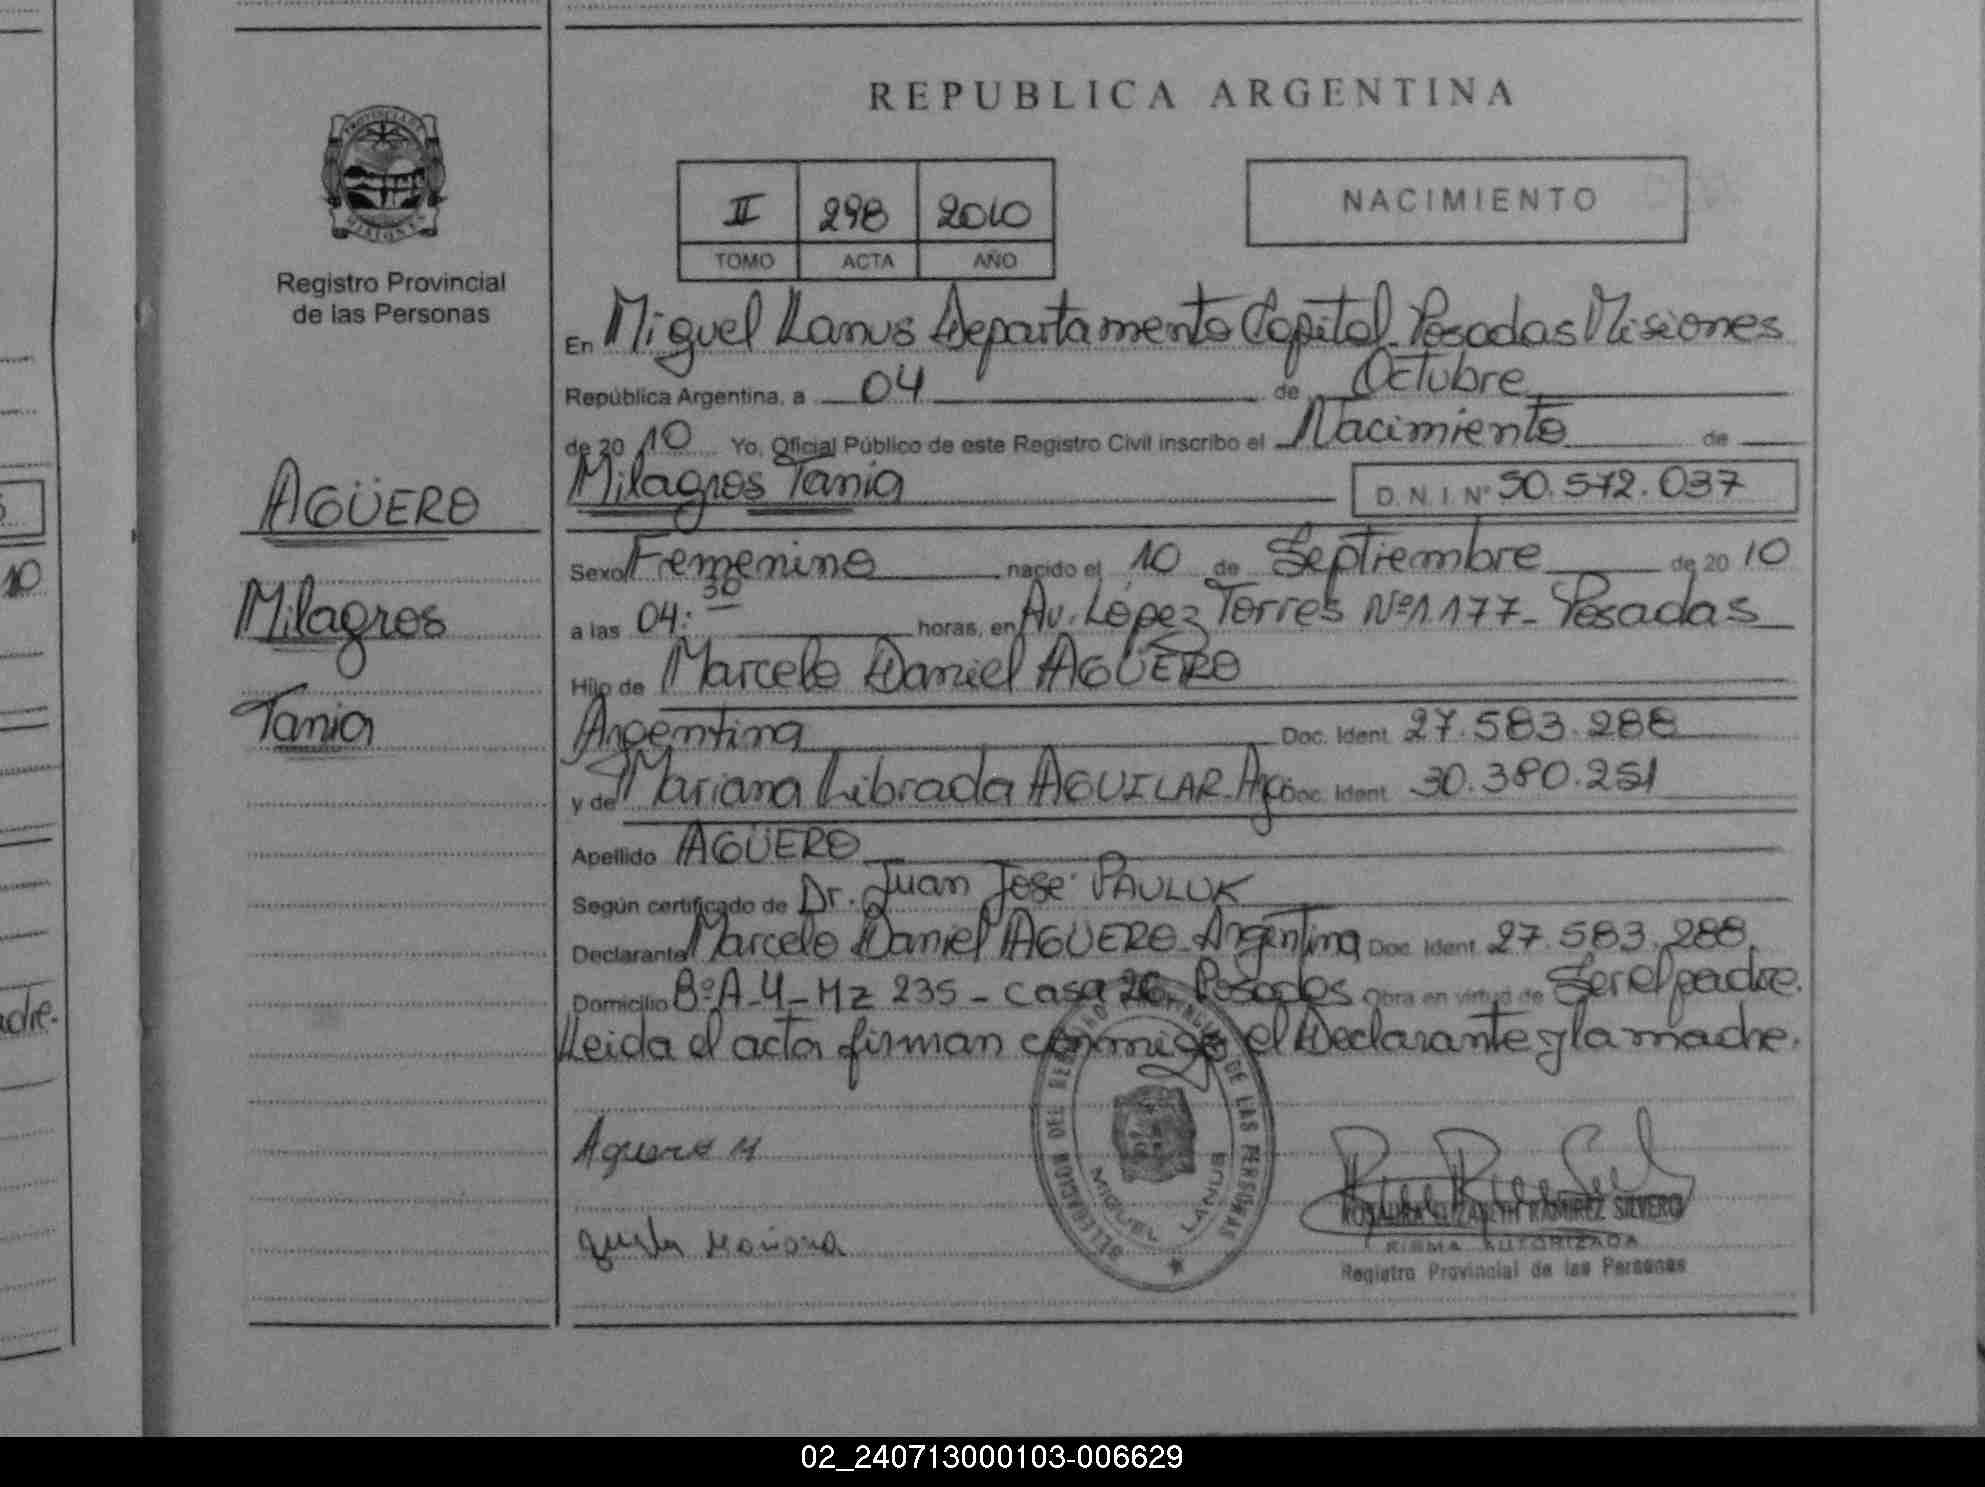 REPUBLICA ARGENTINA
II 298 2010
TOMO ACTA AÑO
NACIMIENTO
Registro Provincial
de las Personas
AGÜERO
Milagros
Tania
En Miguel Lanus Departamento Capital-Posadas Misiones
República Argentina, a 04 de Octubre
de 20 10 Yo, Oficial Público de este Registro Civil inscribo el Nacimiento de
Milagros Tania D.N.I. Nº 50.572.037
Sexo Femenino nacido el 10 de Septiembre de 20 10
a las 04:30 horas, en Av. López Torres Nº 1.177- Posadas
Hijo de Marcelo Daniel AGÜERO
Argentina Doc. Ident. 27.583.288
y de Mariana Librada AGUILAR-Arg. Doc. Ident. 30.380.251
Apellido AGÜERO
Según certificado de Dr. Juan José PAULUK
Declarante Marcelo Daniel AGÜERO-Argentina Doc. Ident. 27.583.288.
Domicilio BºA-4-Mz 235-casa 26. Posadas Obra en virtud de Ser el padre.
Leida el acta firman conmigo el Declarante y la madre.
DELEGACION DEL REGISTRO PROVINCIAL DE LAS PERSONAS
MIGUEL LANUS
Aguero M
Mariana
ROSAURA ELIZABETH RAMIREZ SILVERO
FIRMA AUTORIZADA
Registro Provincial de las Personas
10
adre.
02_240713000103-006629